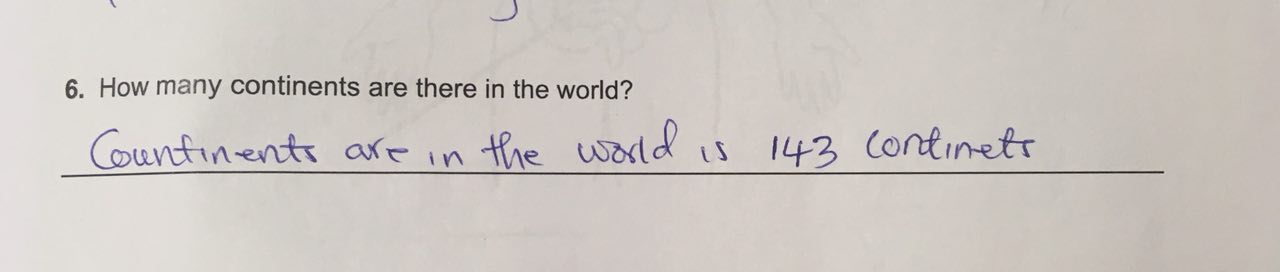 6. How many continents are there in the world?
Countinents are in the world is 143 continets